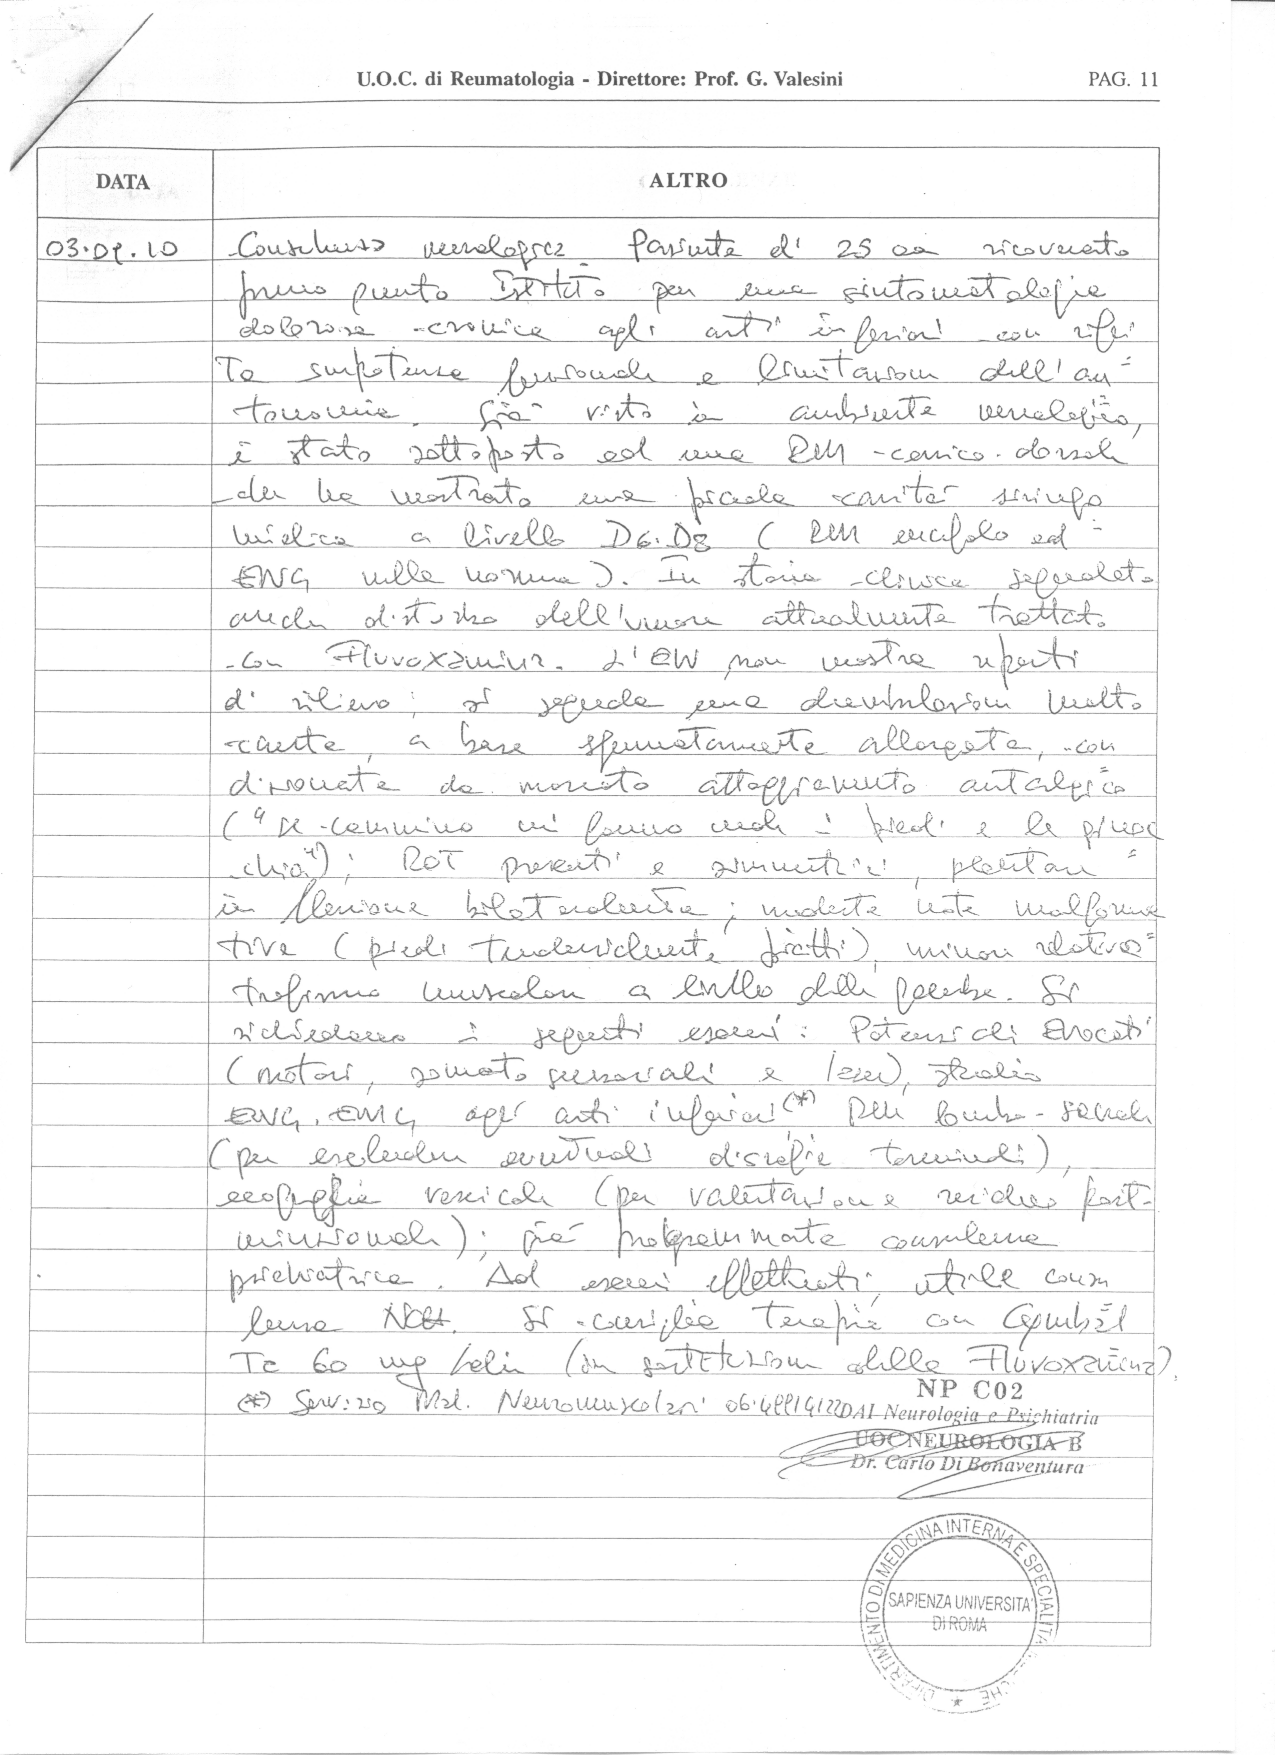 U.O.C. di Reumatologia - Direttore: Prof. G. Valesini PAG. 11
DATA ALTRO
03.09.10 Consulenza neurologica. Paziente di 25 aa ricoverato
presso questo Istituto per una sintomatologia
dolorosa cronica agli arti inferiori con riferi
ta impotenza funzionale e limitazione dell'au=
tonomia. Già visto in ambiente neurologico,
è stato sottoposto ad una RM cervico-dorsale
che ha mostrato una piccola cavità siringo=
mielica a livello D6-D8 (RM encefalo ed
ENG nella norma). In storia clinica segnalato
anche disturbo dell'umore attualmente trattato
con Fluvoxamina. L'EON non mostra reperti
di rilievo; si segnala una deambulazione molto
cauta, a base spuntatamente allargata, con
dizionata da marcato atteggiamento antalgico
("se cammino mi fanno male i piedi e le ginoc
chia"); ROT presenti e simmetrici, plantari=
in flessione bilateralmente; modeste note malforma
tive (piedi tendenzialmente piatti), minor relativo=
trofismo muscolare a livello delle gambe. Si
richiedono i seguenti esami: Potenziali Evocati
(motori, somatosensoriali e laser), studio
ENG.EMG agli arti inferiori(*) RM lombo-sacrale
(per escludere eventuali disrafie terminali),
ecografia vescicale (per valutazione residuo post-
minzionale); già programmata consulenza
psichiatrica. Ad esami effettuati, utile consu
lenza NCH. Si consiglia terapia con Cymbal
ta 60 mg 1 cp/die (in sostituzione della Fluvoxamina).
(*) Servizio Mal. Neuromuscolari 06.49914122
NP C02
DAI Neurologia e Psichiatria
UOC NEUROLOGIA B
Dr. Carlo Di Bonaventura
DIPARTIMENTO DI MEDICINA INTERNA E SPECIALITA CHE
SAPIENZA UNIVERSITA'
DI ROMA